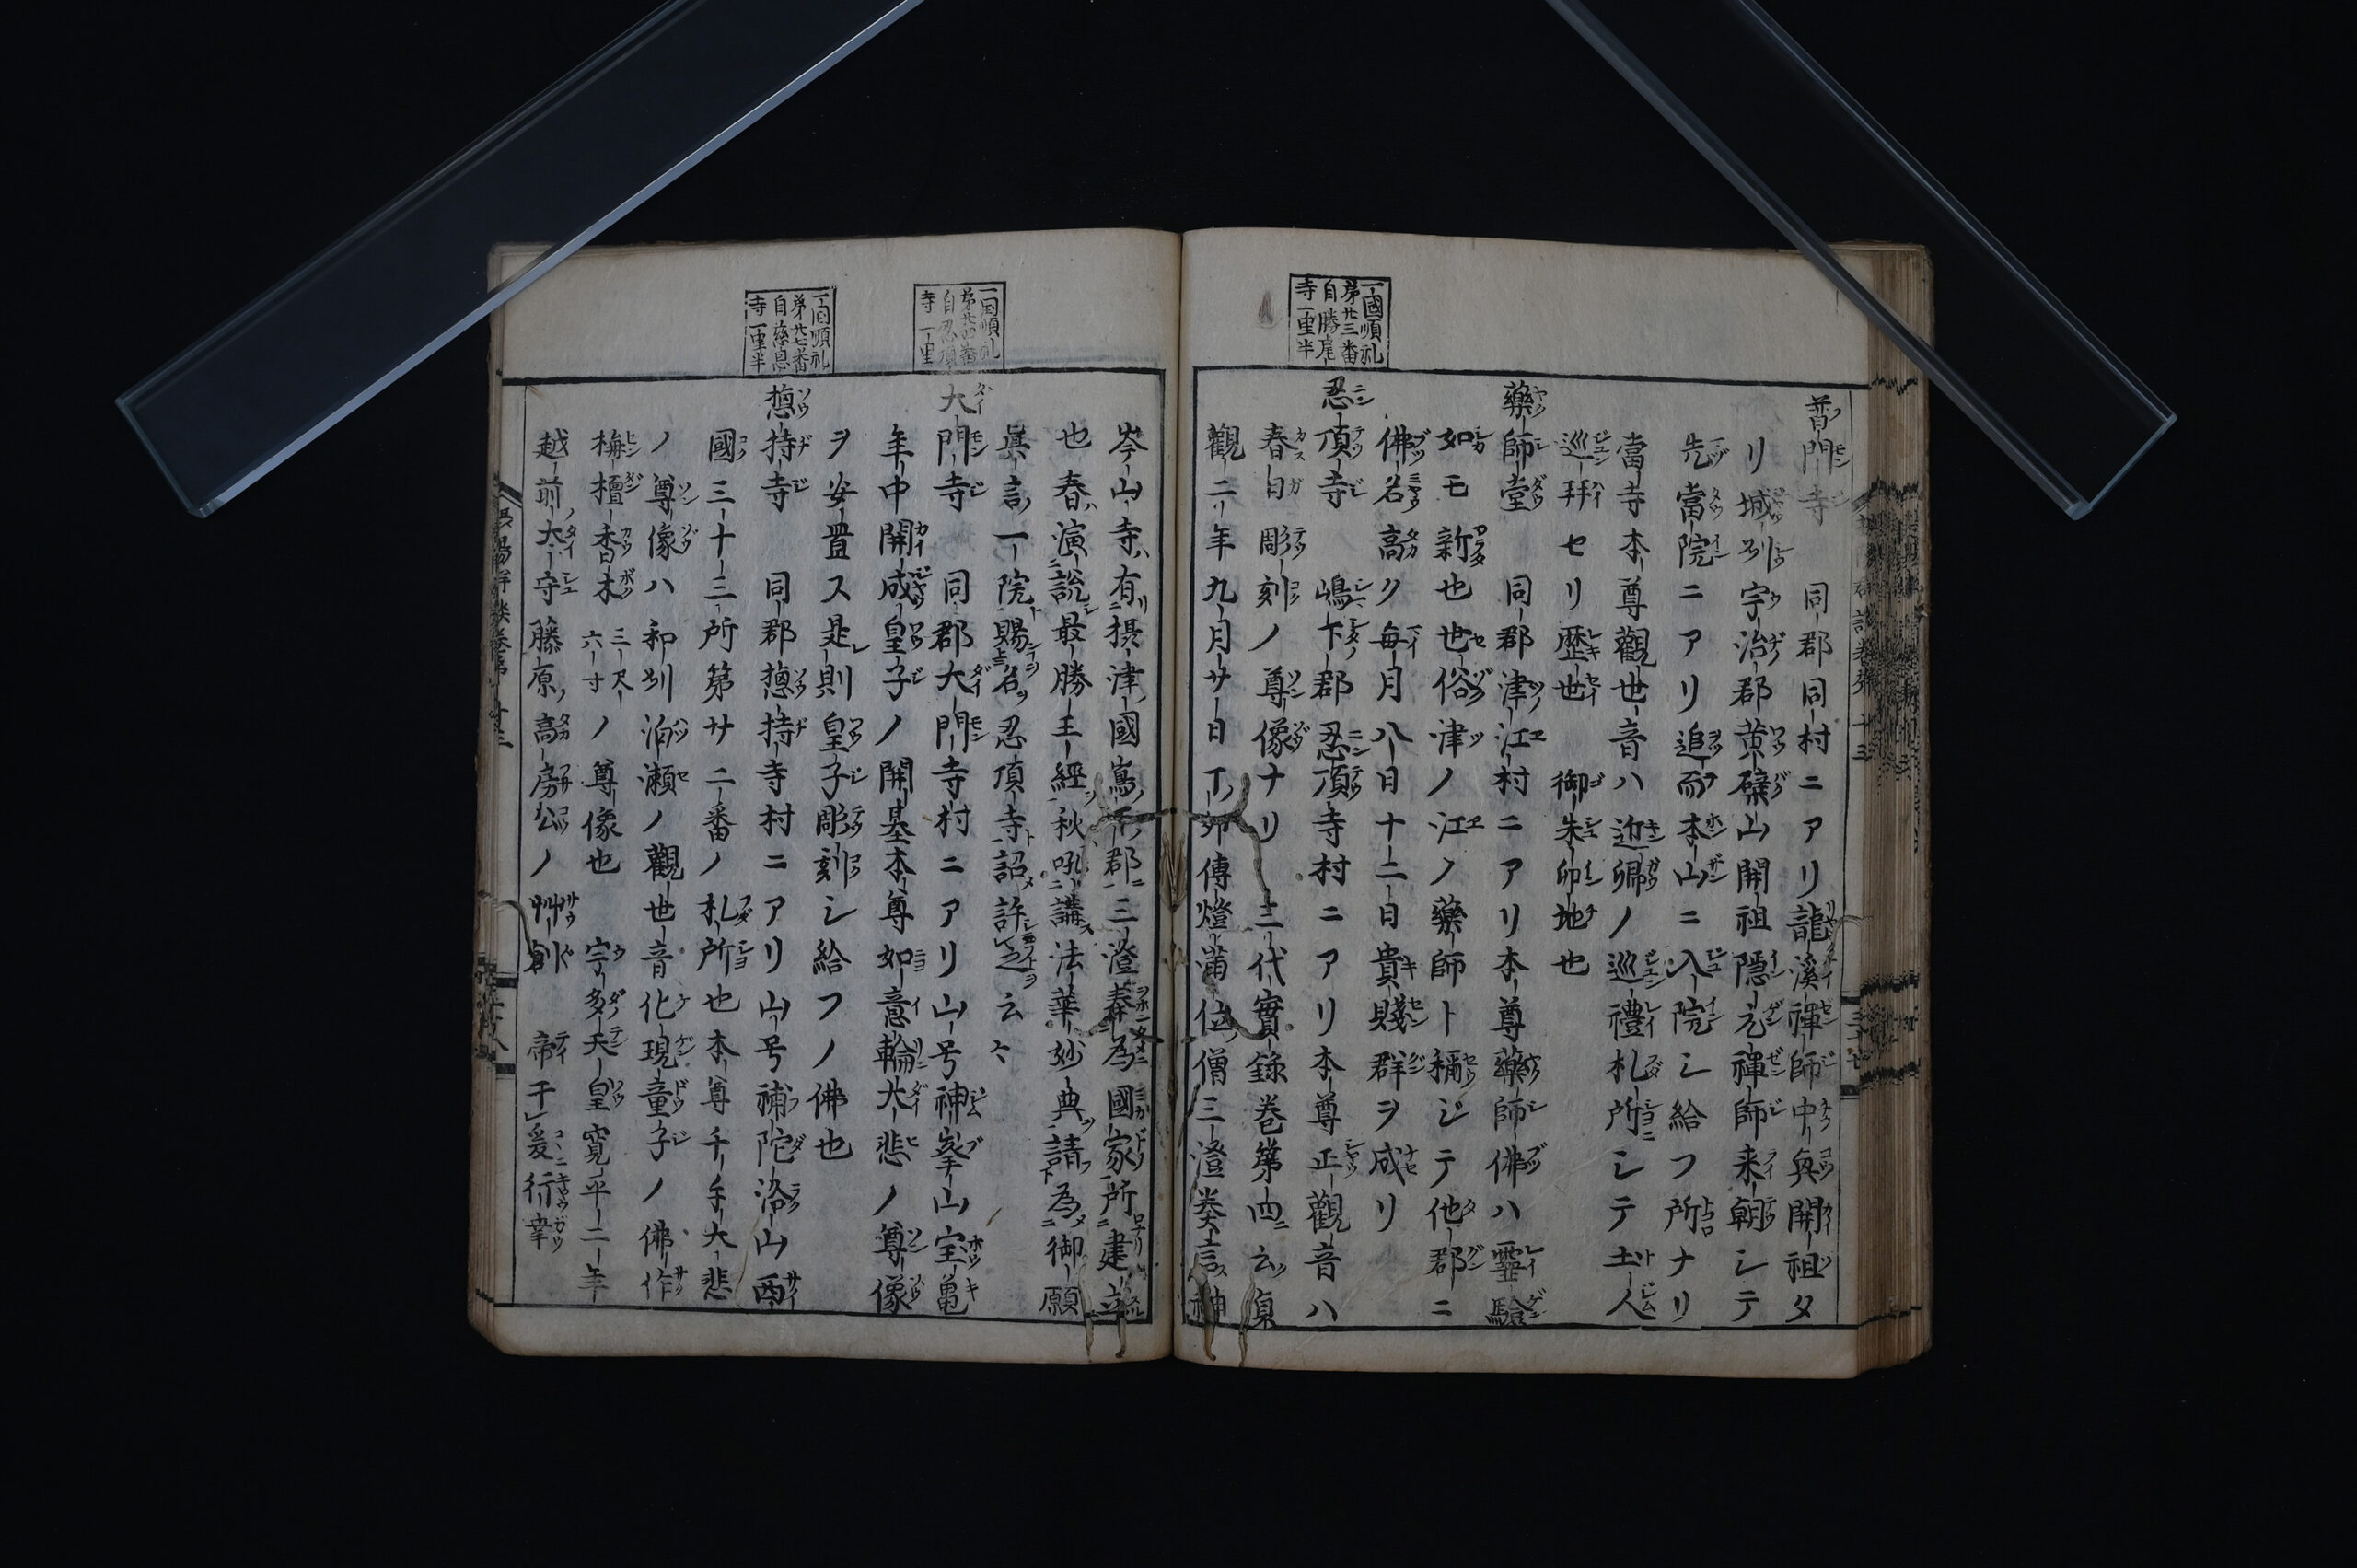 一國順礼
第廿三番
自勝尾
寺一里半
普門寺 同郡同村ニアリ龍溪禪師中興開祖タ
リ城州宇治郡黄檗山開祖隠元禪師来朝シテ
先當院ニアリ追而本山ニ入院シ給フ所ナリ
當寺本尊觀世音ハ近郷ノ巡禮札所ニシテ土人
巡拜セリ歴世 御朱印地也
藥師堂 同郡津江村ニアリ本尊藥師佛ハ靈驗
如モ新也世俗津ノ江ノ藥師ト稱ジテ他郡ニ
佛名高ク毎月八日十二日貴賤群ヲ成セリ
忍頂寺 嶋下郡忍頂寺村ニアリ本尊正觀音ハ
春日彫刻ノ尊像ナリ 三代實錄巻第四云貞
觀二年九月廿日丁卯傳燈滿位僧三澄奏言神
一国順礼
第廿四番
自忍頂
寺一里
一国順礼
第廿七番
自慈恩
寺一里半
岑山寺有摂津國嶌下郡三澄奉為國家所建立
也春演說最勝王經秋吼講法華妙典請為御願
眞言一院賜名忍頂寺詔許之云云
大門寺 同郡大門寺村ニアリ山号神峯山宝亀
年中開成皇子ノ開基本尊如意輪大悲ノ尊像
ヲ安置ス是則皇子彫刻シ給フノ佛也
惣持寺 同郡惣持寺村ニアリ山号補陀洛山西
國三十三所第廿二番ノ札所也本尊千手大悲
ノ尊像ハ和州泊瀬ノ觀世音化現童子ノ佛作
栴檀香木 三尺六寸 ノ尊像也 宇多天皇寛平二年
越前大守藤原高房公ノ艸創 帝干爰行幸